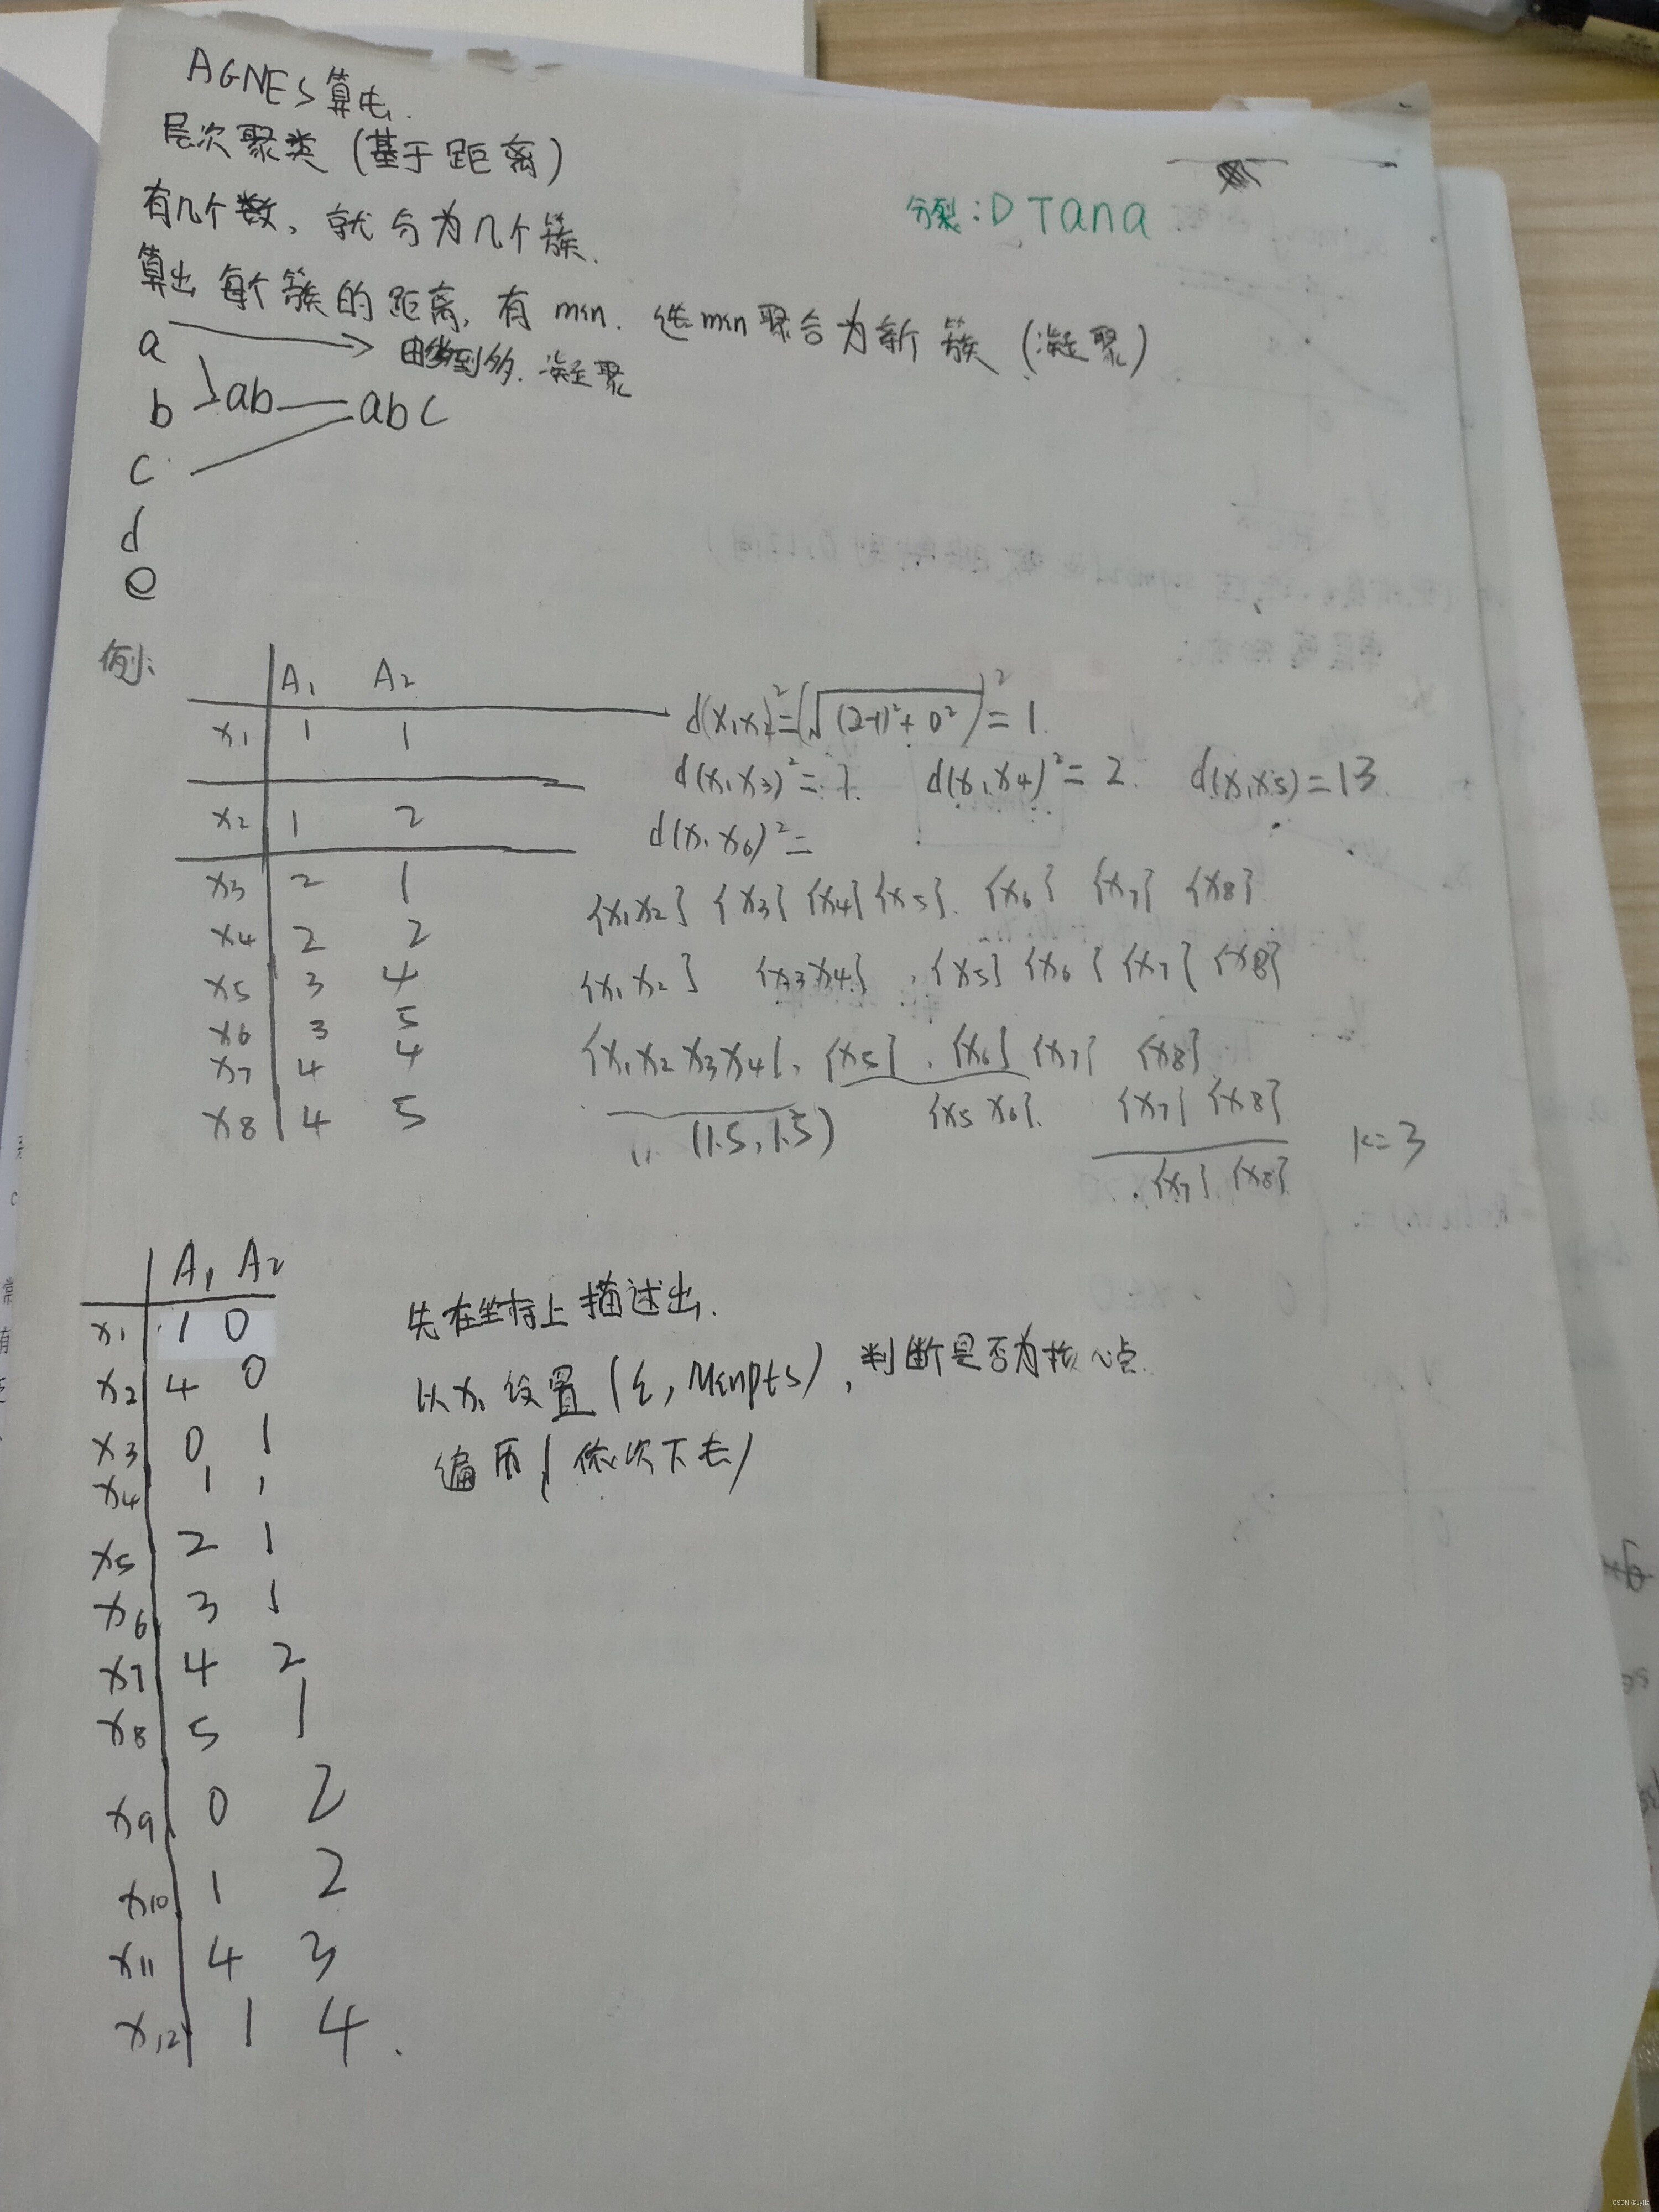 AGNES算法.
层次聚类(基于距离)
有几个数,就分为几个簇.
分裂:DIana
算出每个簇的距离,有min.选min聚合为新簇(凝聚)
由少到多.凝聚
a
b ab abc
c
d
e
例:
A1 A2
x1 1 1
x2 1 2
x3 2 1
x4 2 2
x5 3 4
x6 3 5
x7 4 4
x8 4 5
d(x1x2)²=(√(2-1)²+0²)²=1.
d(x1x3)²=1. d(x1x4)²=2. d(x1x5)=13
d(x1x6)²=
{x1x2} {x3} {x4} {x5}. {x6} {x7} {x8}
{x1x2} {x3x4}, {x5} {x6} {x7} {x8}
{x1x2x3x4}, {x5}, {x6} {x7} {x8}
(1.5,1.5) {x5x6}. {x7} {x8}
k=3
.{x7} {x8}
A1 A2
x1 1 0
x2 4 0
x3 0 1
x4 1 1
x5 2 1
x6 3 1
x7 4 2
x8 5 1
x9 0 2
x10 1 2
x11 4 3
x12 1 4.
先在坐标上描述出.
以x1设置(ξ,Minpts),判断是否为核心点.
遍历(依次下去)
CSDN @lyttis